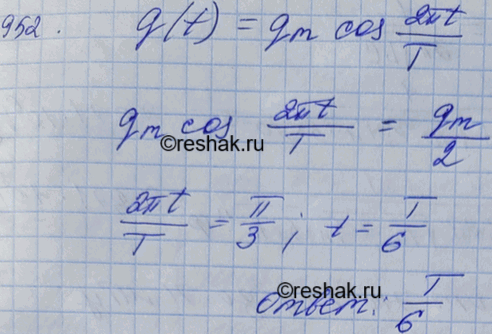 952. q(t) = qm cos 2πt/T
qm cos 2πt/T = qm/2
©reshak.ru
2πt/T = π/3 ; t = T/6
©reshak.ru
Ответ: T/6